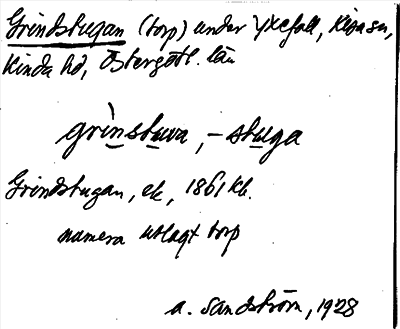 Grindstugan (torp) under Yxefall, Kisa sn,
Kinda hd, Östergötl. län
grìnstuvun, -stuga
Grindstugan, ek, 1861 kb.
numera utlagt torp
A. Sandström, 1928